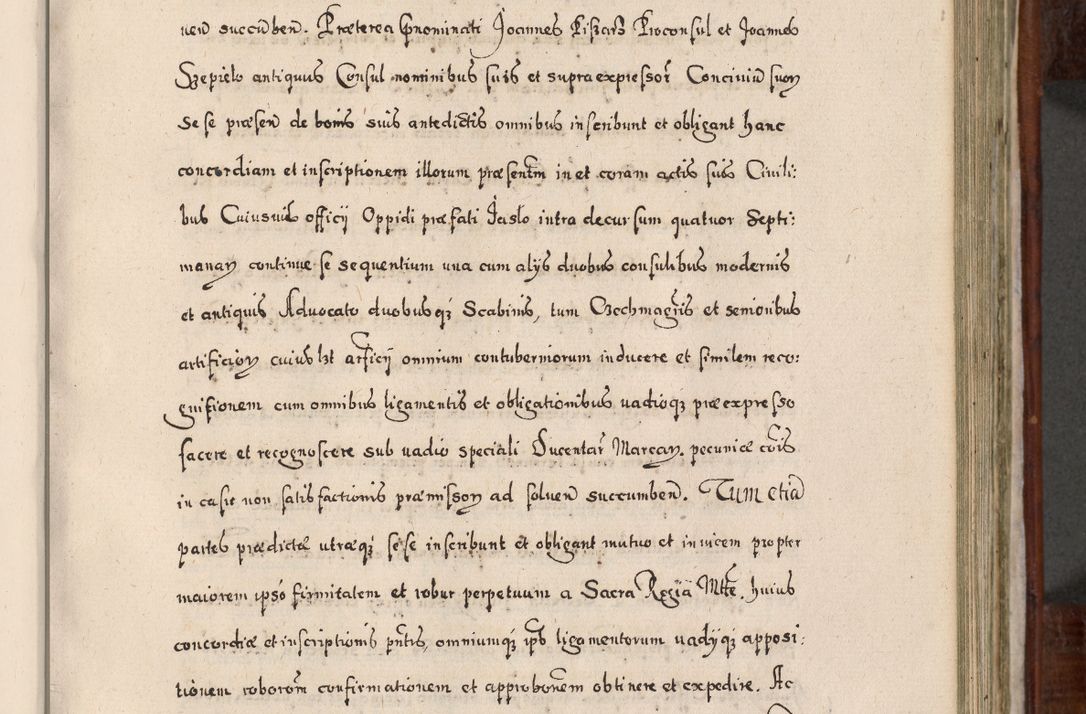 uen̄ succūben̄. Præterea Prnominati Joannes Piszarz Proconsul et Joannes
Szepielo antiquus Consul nominibus suis et supraexpressor̄ Conciuiū suoꝝ
se se præsen̄ de bonis suis antedictis omnibus inscribunt et obligant hanc
concordiam et inscriptionem illorum præsentm̄ in et coram actis suis Ciuili:
bus Cuiusuis officij Oppidi præfati Jasło intra decursum quatuor Septi:
manaꝝ continue se sequentium vna cum alijs duobus consulibus modernis
et antiquis Aduocato duobusqꝫ Scabinis, tum Czechmagr̄is et senioribus
artificioꝝ cuiuslꝫt artficij omnium contuberniorum inducere et similem reco:
gnitionem cum omnibus ligamentis et obligationibus vadioqꝫ præexpresso
facere et recognoscere sub vadio speciali Ducentar̄ Marcaꝝ pecuniæ cōis
in casu non satisfactionis præmissoꝝ ad soluen̄ succumben̄. Tum etiā
partes prædictæ vtræqꝫ sese inscribunt et obligant mutuo et inuicem propter
maiorem ipsō firmitatem et robur perpetuum a Sacra Regia Mtte. huius
concordiæ et inscriptionis pn̄tis, omniumqꝫ ipō ligamentorum vadijqꝫ apposi:
tionem roborōm confirmationem et approbōnem obtinere et expedire. Ac